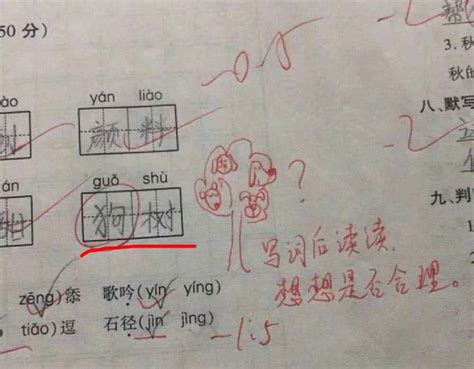 50 分）
-0.5
3. 秋
秋的
ào yán liào
颜料
八、默写
án guǒ shù
狗树
？
九、判
写词后读读，
想想是否合理。
zēng)添 歌吟(yín yíng)
tiǎo)逗 石径(jìn jìng)
-1.5